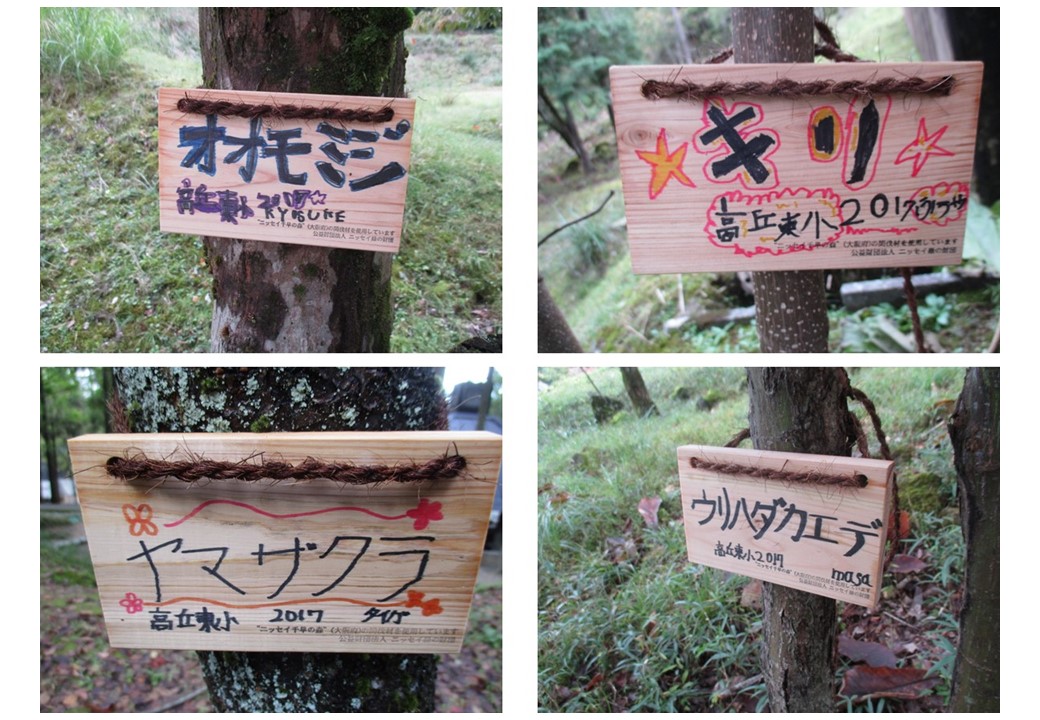 オオモミジ
高丘東小 2017
RYOSUKE
"ニッセイ千早の森" (大阪府)の間伐材を使用しています
公益財団法人 ニッセイ緑の財団
キリ
高丘東小 2017
"ニッセイ千早の森" (大阪府)の間伐材を使用しています
公益財団法人 ニッセイ緑の財団
ヤマザクラ
高丘東小 2017 タイガ
"ニッセイ千早の森" (大阪府)の間伐材を使用しています
公益財団法人 ニッセイ緑の財団
ウリハダカエデ
高丘東小2017 masa
"ニッセイ千早の森" (大阪府)の間伐材を使用しています
公益財団法人 ニッセイ緑の財団